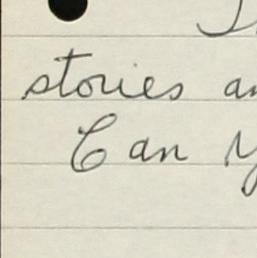 stories an
Can y